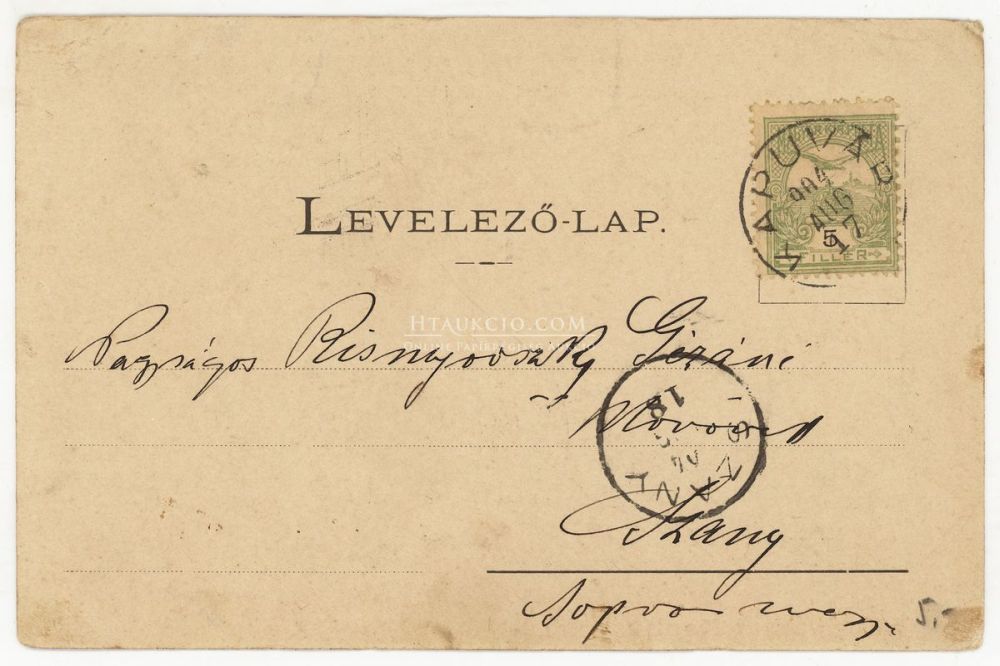 KAPUVÁR
904
AUG
17
5
FILLÉR
LEVELEZŐ-LAP.
HTAUKCIO.COM
Nagyságos Risnyovszky Gézáné
SZANY
904
18
Szany
Sopron megye
5.-